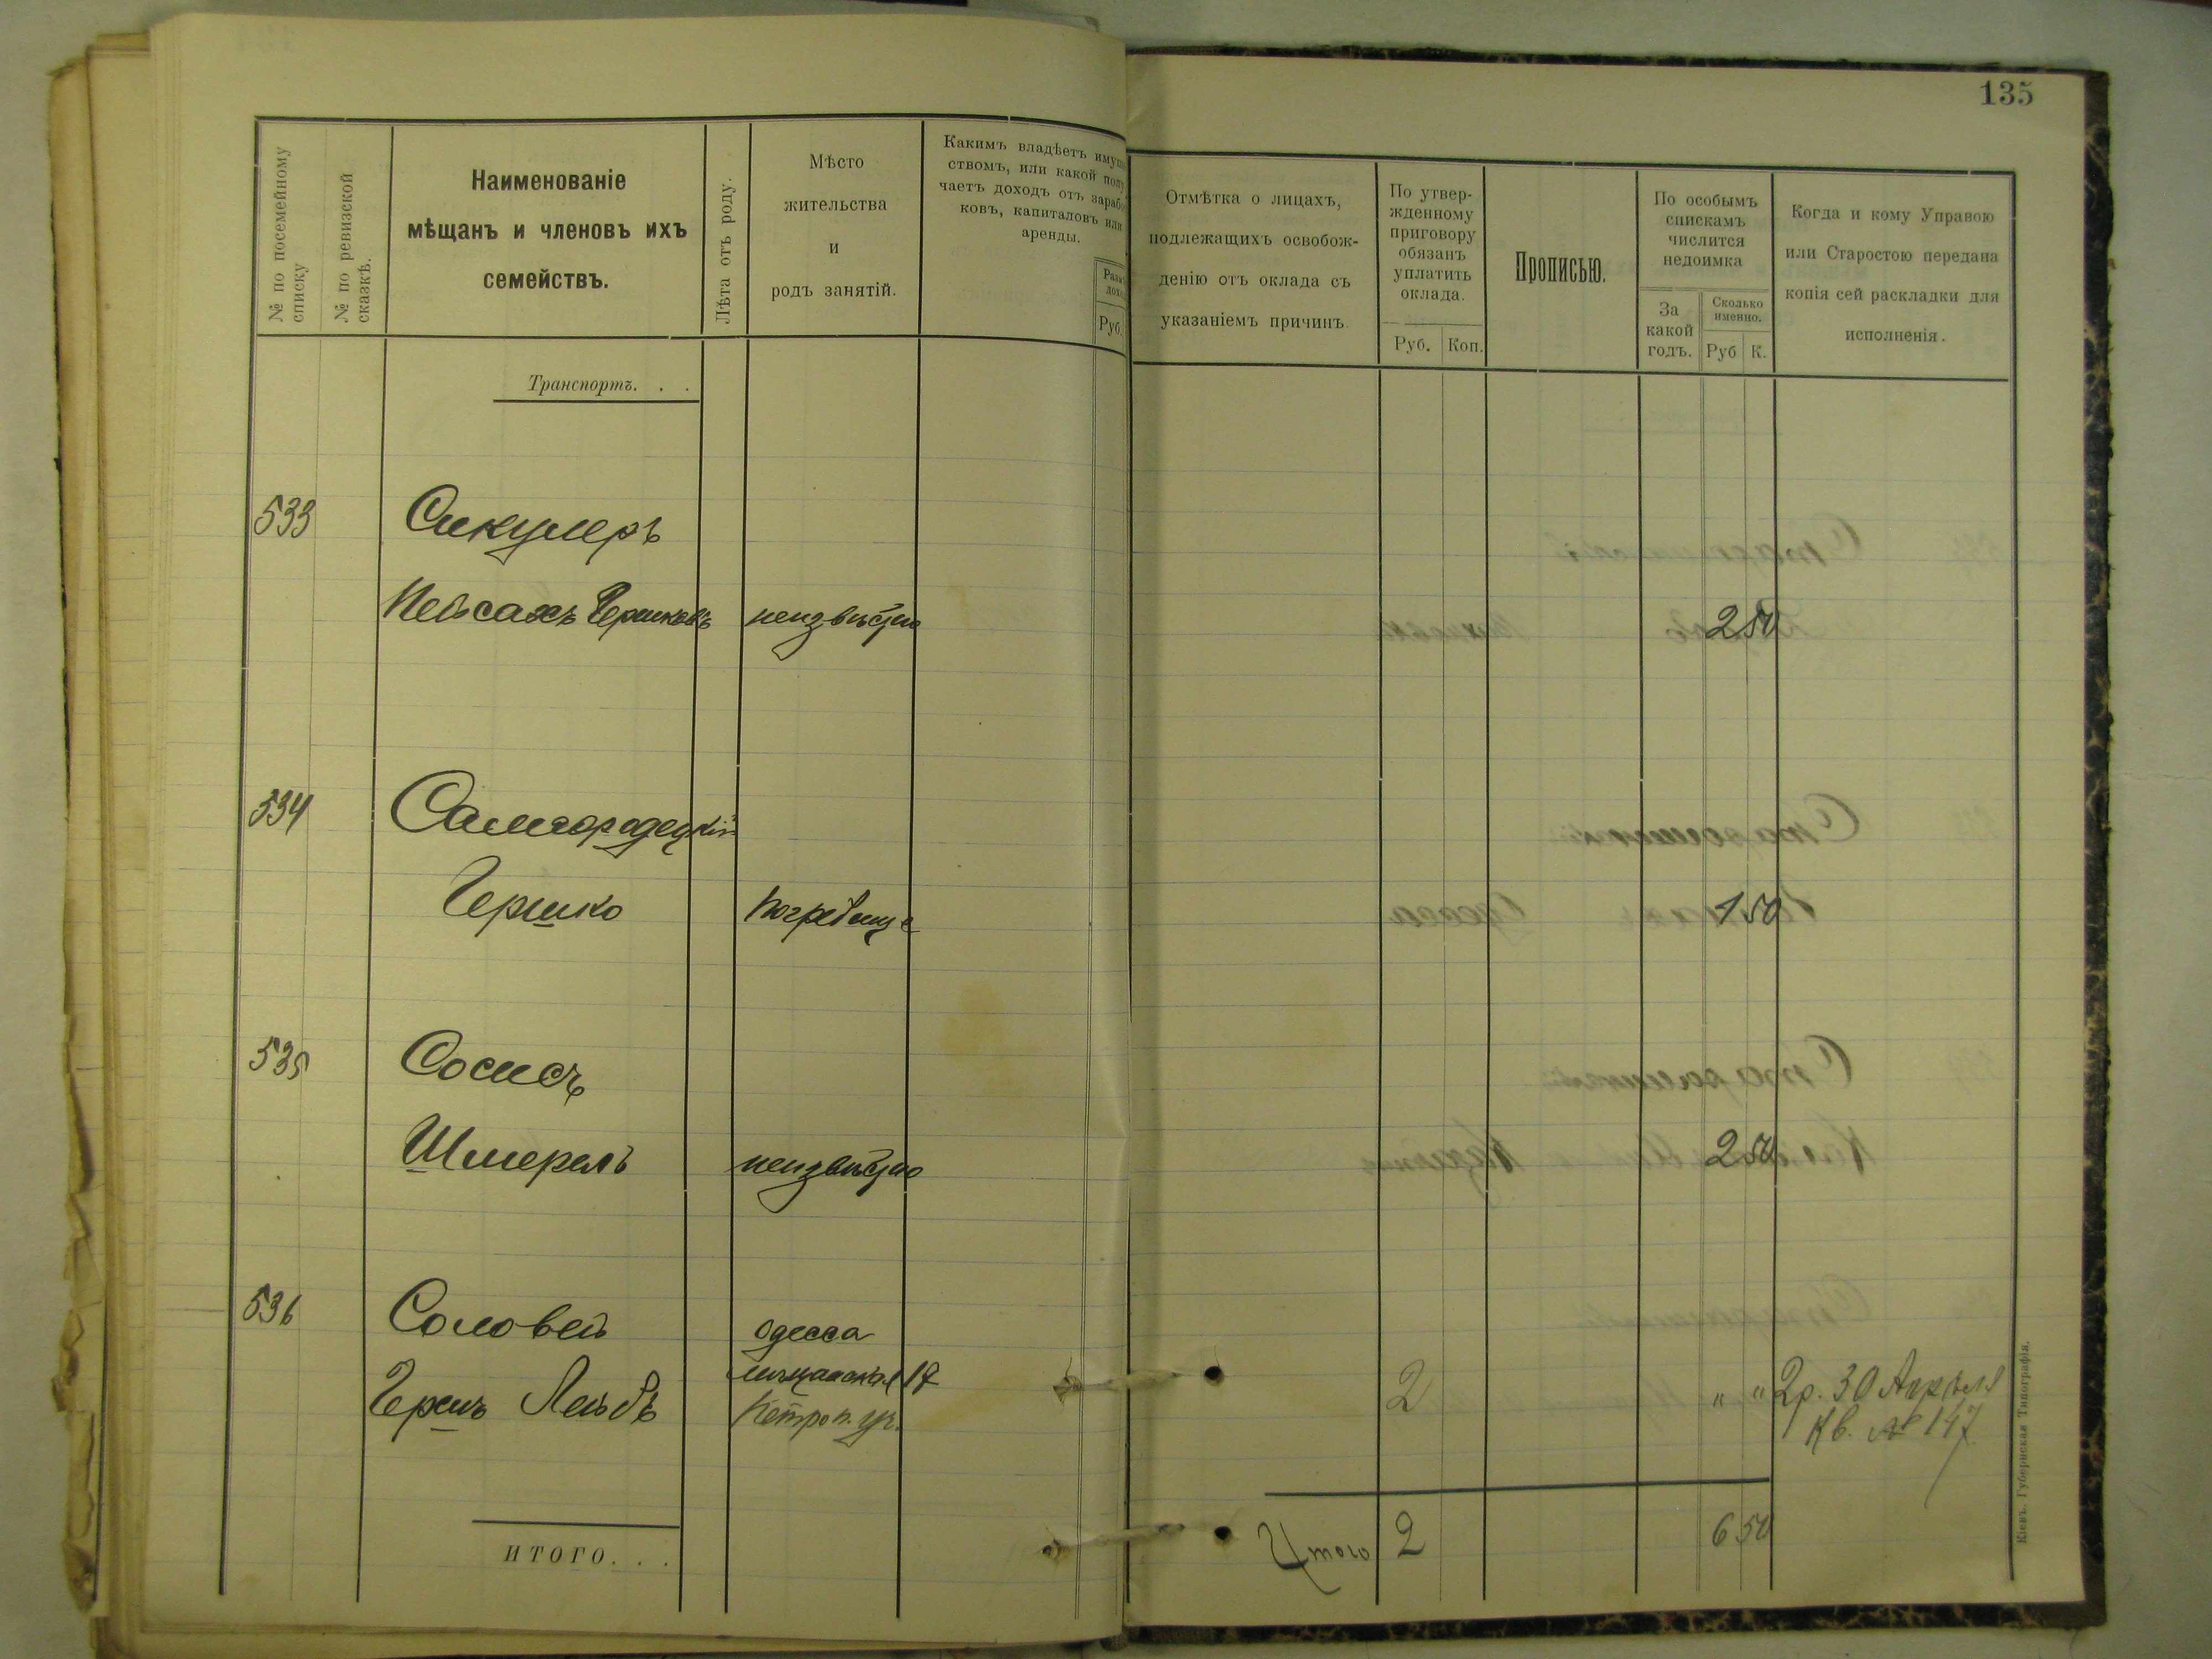 135
№ по посемейному
списку
№ по ревизской
сказкѣ.
Наименованіе
мѣщанъ и членовъ ихъ
семействъ.
Лѣта отъ роду.
Мѣсто
жительства
и
родъ занятій.
Какимъ владѣетъ
ствомъ, или какой
чаетъ доходъ отъ
ковъ, капиталовъ или
аренды.
Руб.
Отмѣтка о лицахъ,
подлежащихъ освобож-
денію отъ оклада съ
указаніемъ причинъ.
По утвер-
жденному
приговору
обязанъ
уплатить
оклада.
Руб. Коп.
Прописью.
По особымъ
спискамъ
числится
недоимка
За
какой
годъ.
Сколько
именно.
Руб К.
Когда и кому Управою
или Старостою передана
копія сей раскладки для
исполненія.
Транспортъ. . .
533 Сикулеръ
Пейсахъ Гершковъ неизвѣстно 2 50
534 Самгородецкій
Гершко Погребище 1 50
535 Сосисъ
Шмерель неизвѣстно 2 50
536 Соловей одесса
17
Гершъ Лейбъ 2 " " 2р. 30 Апрѣля
Кв. № 147
ИТОГО. . .
Итого 2 6 50
Кіевъ. Губернская Типографія.